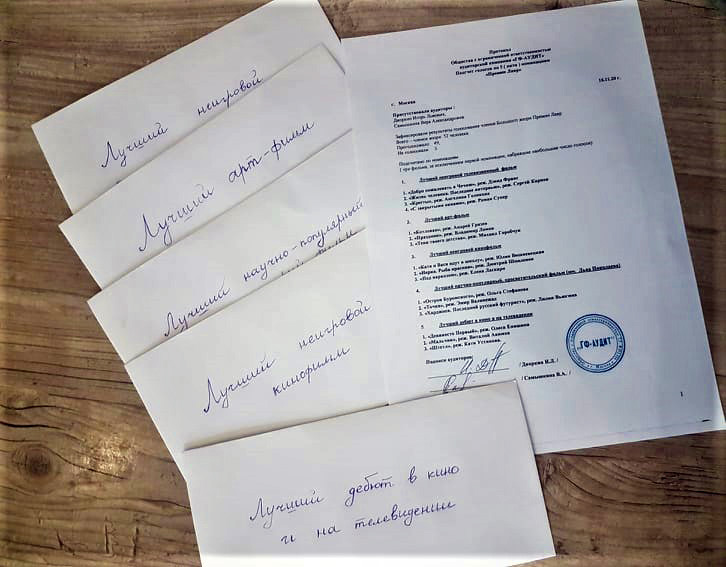 Лучший неигровой
Лучший арт-фильм
Лучший научно-популярный
фильм
Лучший неигровой
кинофильм
Лучший дебют в кино
и на телевидении
Протокол
Общества с ограниченной ответственностью
аудиторской компании «ГФ-АУДИТ»
Подсчет голосов по 5 ( пяти ) номинациям
«Премии Лавр»
г. Москва
Присутствовали аудиторы :
Дворкин Игорь Львович,
Санькова Вера Александровна
Зафиксировали результаты голосования членов Большого жюри Премии Лавр
Всего – членов жюри 52 человека
Проголосовало 49,
Не голосовали 3
Подсчитано по номинациям
( три фильма, за исключением первой номинации, набравшие наибольшее число голосов)
1. Лучший неигровой телевизионный фильм
1. «Добро пожаловать в Чечню», реж. Дэвид Франс
2. «Жизнь человека. Последнее интервью», реж. Сергей Карпов
3. «Кроты», реж. Ангелина Голикова
4. «С закрытыми окнами», реж. Роман Супер
2. Лучший арт-фильм
1. «Котлован», реж. Андрей Грязев
2. «Праздник», реж. Владимир
3. «Тени твоего детства», реж. Михаил Горобчук
3. Лучший неигровой кинофильм
1. «Катя и Вася идут в школу», реж. Юлия Вишневецкая
2. реж. Дмитрий
3. «Под наркозом», реж. Елена Ласкари
4. Лучший научно-популярный, просветительский фильм (им. Льва Николаева)
1. реж. Ольга Стефанова
2. реж. Эмир
3. «Харджиев. Последний русский футурист», реж. Лилия Вьюгина
5 Лучший дебют в кино и на телевидении
1. реж. Олеся
2. «Мальчик», реж. Виталий Акимов
3. реж. Катя
Подписи аудиторов:
"ГФ-АУДИТ"
1